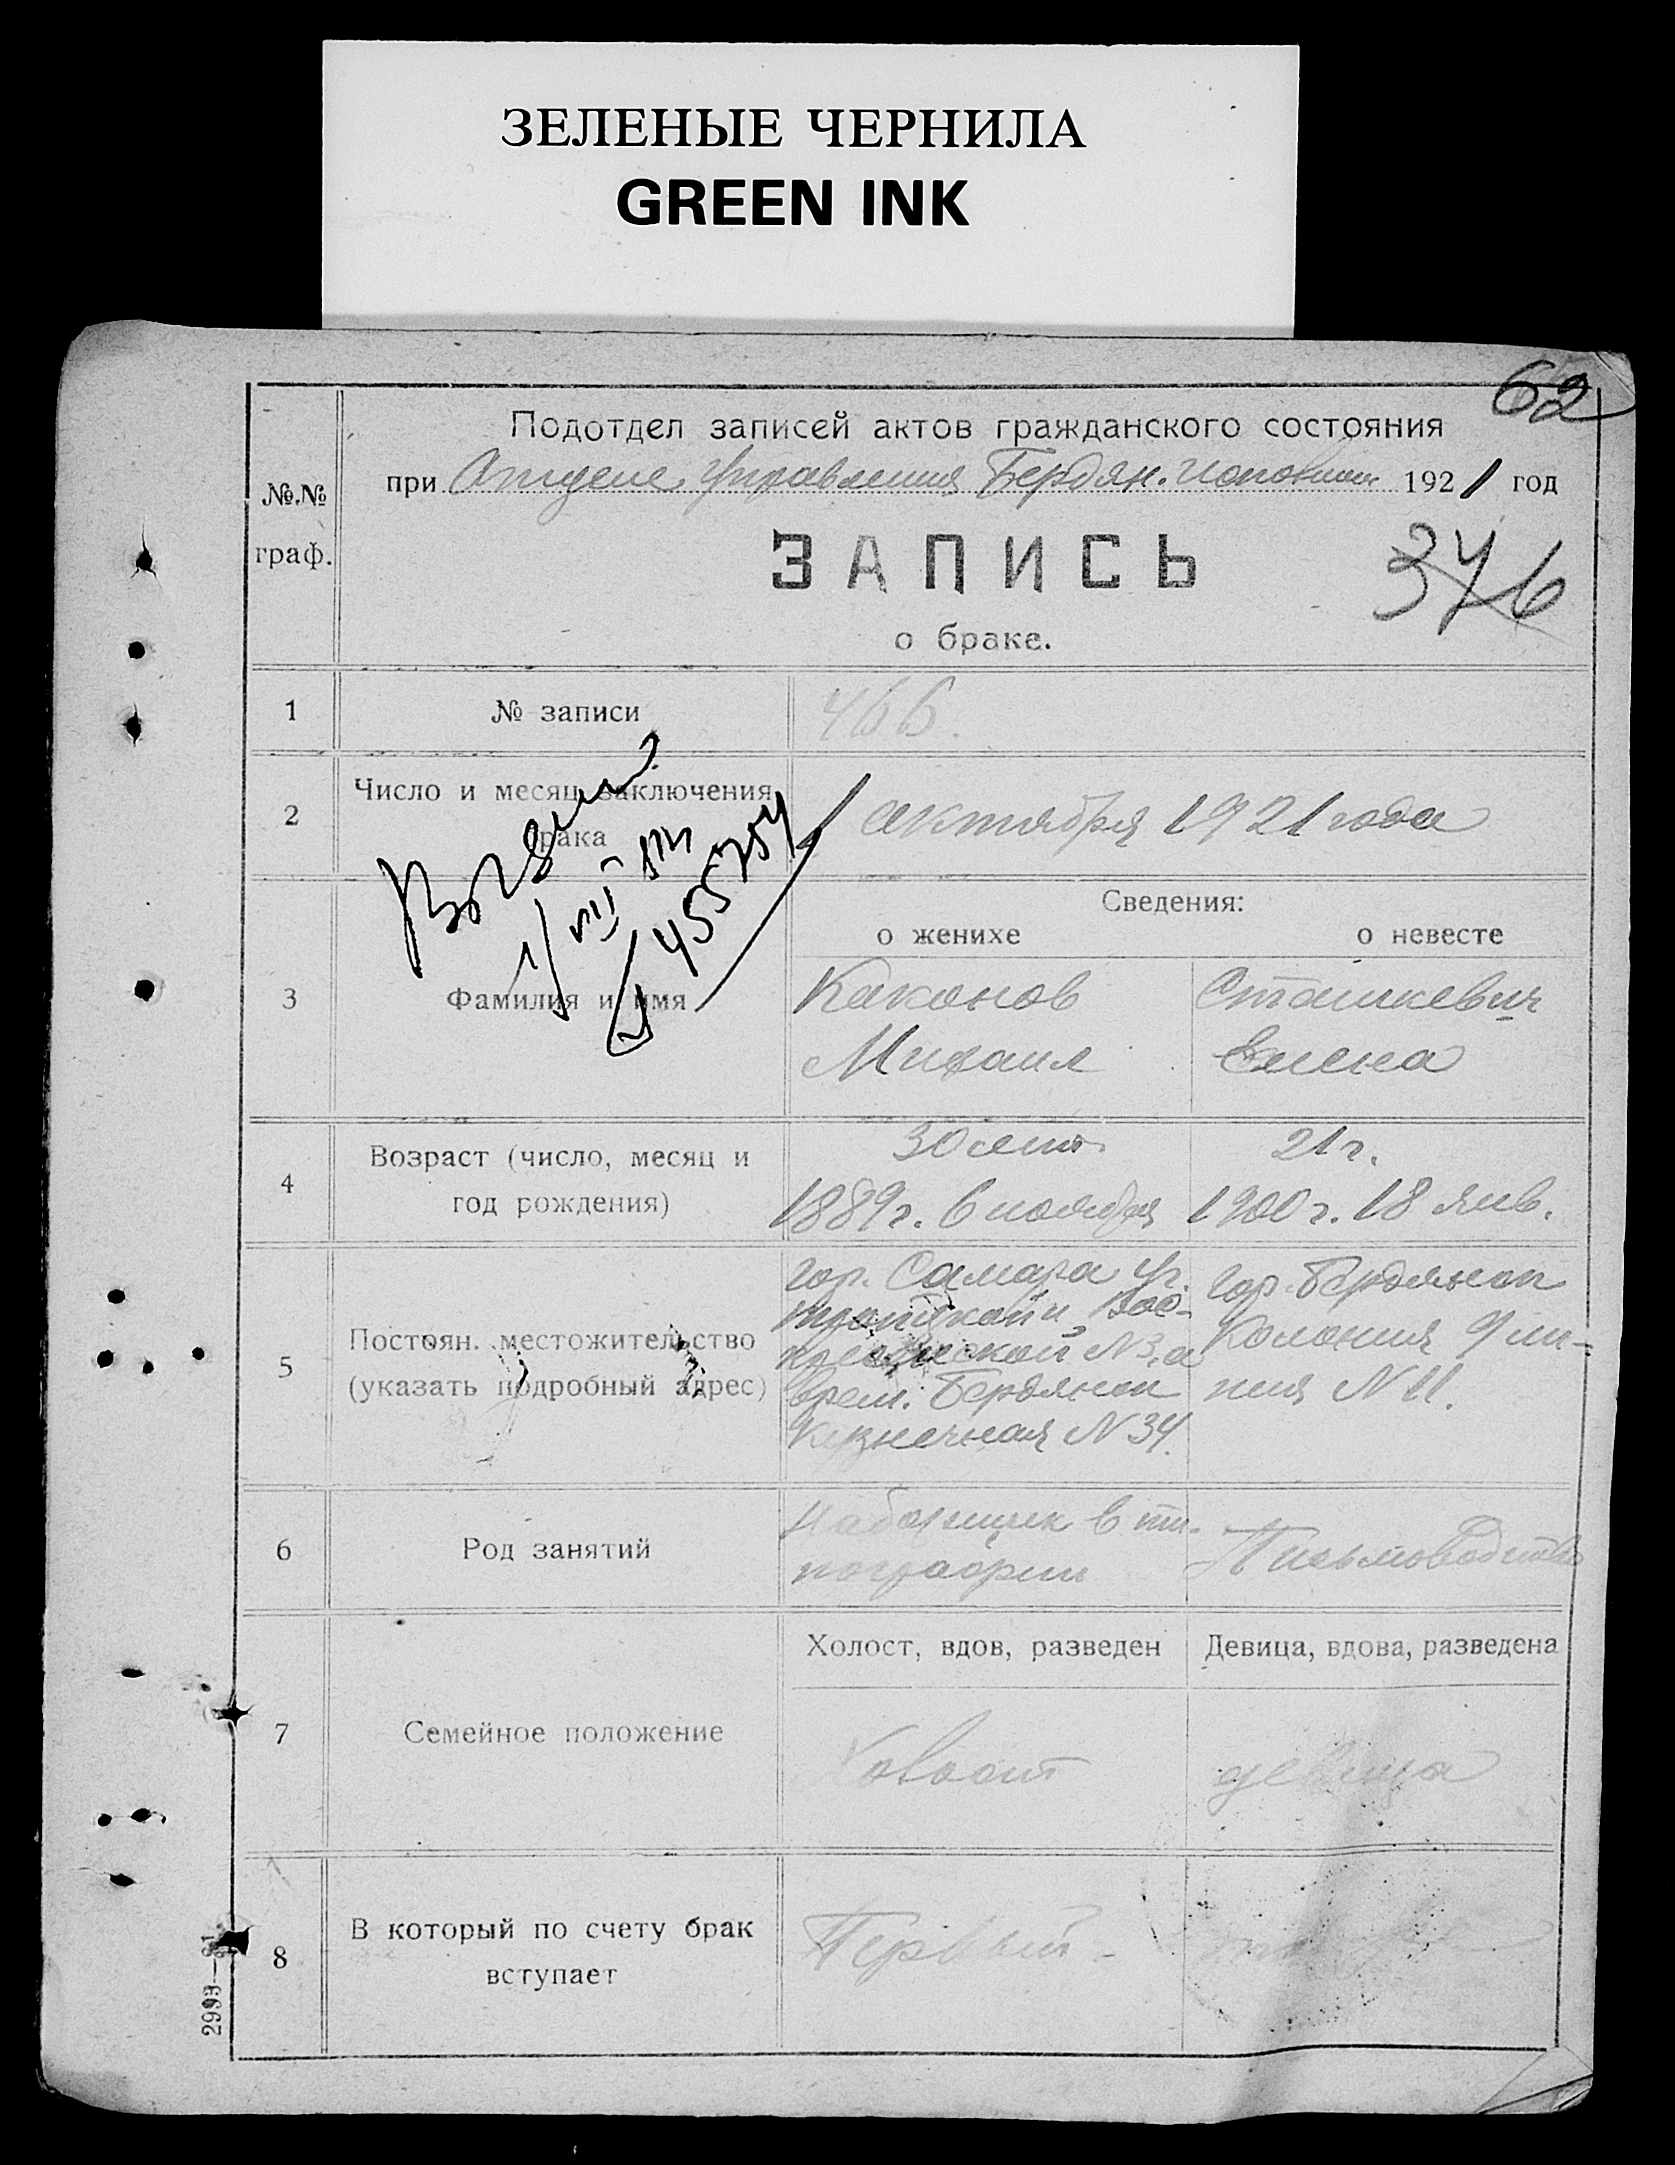 ЗЕЛЕНЫЕ ЧЕРНИЛА
GREEN INK
62
Подотдел записей актов гражданского состояния
при Отделе Управления Бердян. 1921 год
№.№
граф.
ЗАПИСЬ
376
о браке.
1 № записи 466.
2 Число и месяц заключения
брака
1 октября 1921 года
455754
Сведения:
о женихе о невесте
3 Фамилия и имя
Каконов Сташкевич
Михаил Елена
4 Возраст (число, месяц и
год рождения)
30 лет 21 г.
1889 г. 6 ноября 1900 г. 18 янв.
5 Постоян. местожительство
(указать подробный адрес)
гор. Самара уг.
Троицкой и Вос-
кресенской №3, а
врем. Бердянск
Кузнечная №34.
гор. Бердянск
Колония 9 ли-
ния №11.
6 Род занятий
Наборщик в ти-
пографии
Письмоводство
7 Семейное положение
Холост, вдов, разведен Девица, вдова, разведена
Холост девица
8 В который по счету брак
вступает
Первый
2993